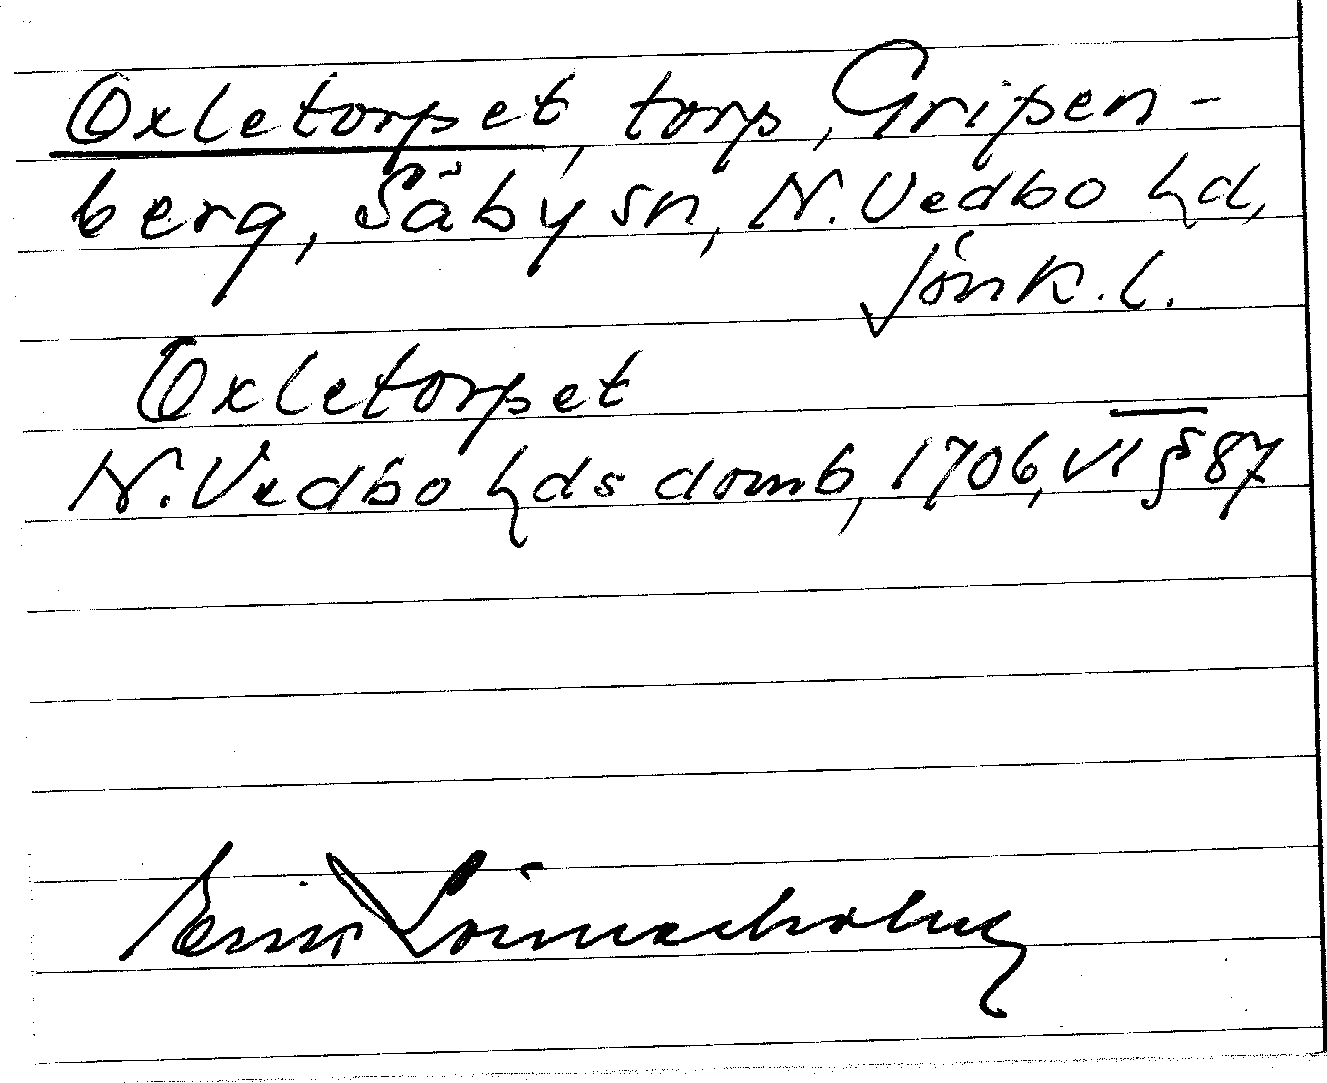 Oxletorpet, torp, Gripen-
berg, Säby sn, N. Vedbo hd,
Jönk. l.
Oxletorpet
N. Vedbo hds domb, 1706, VI § 87